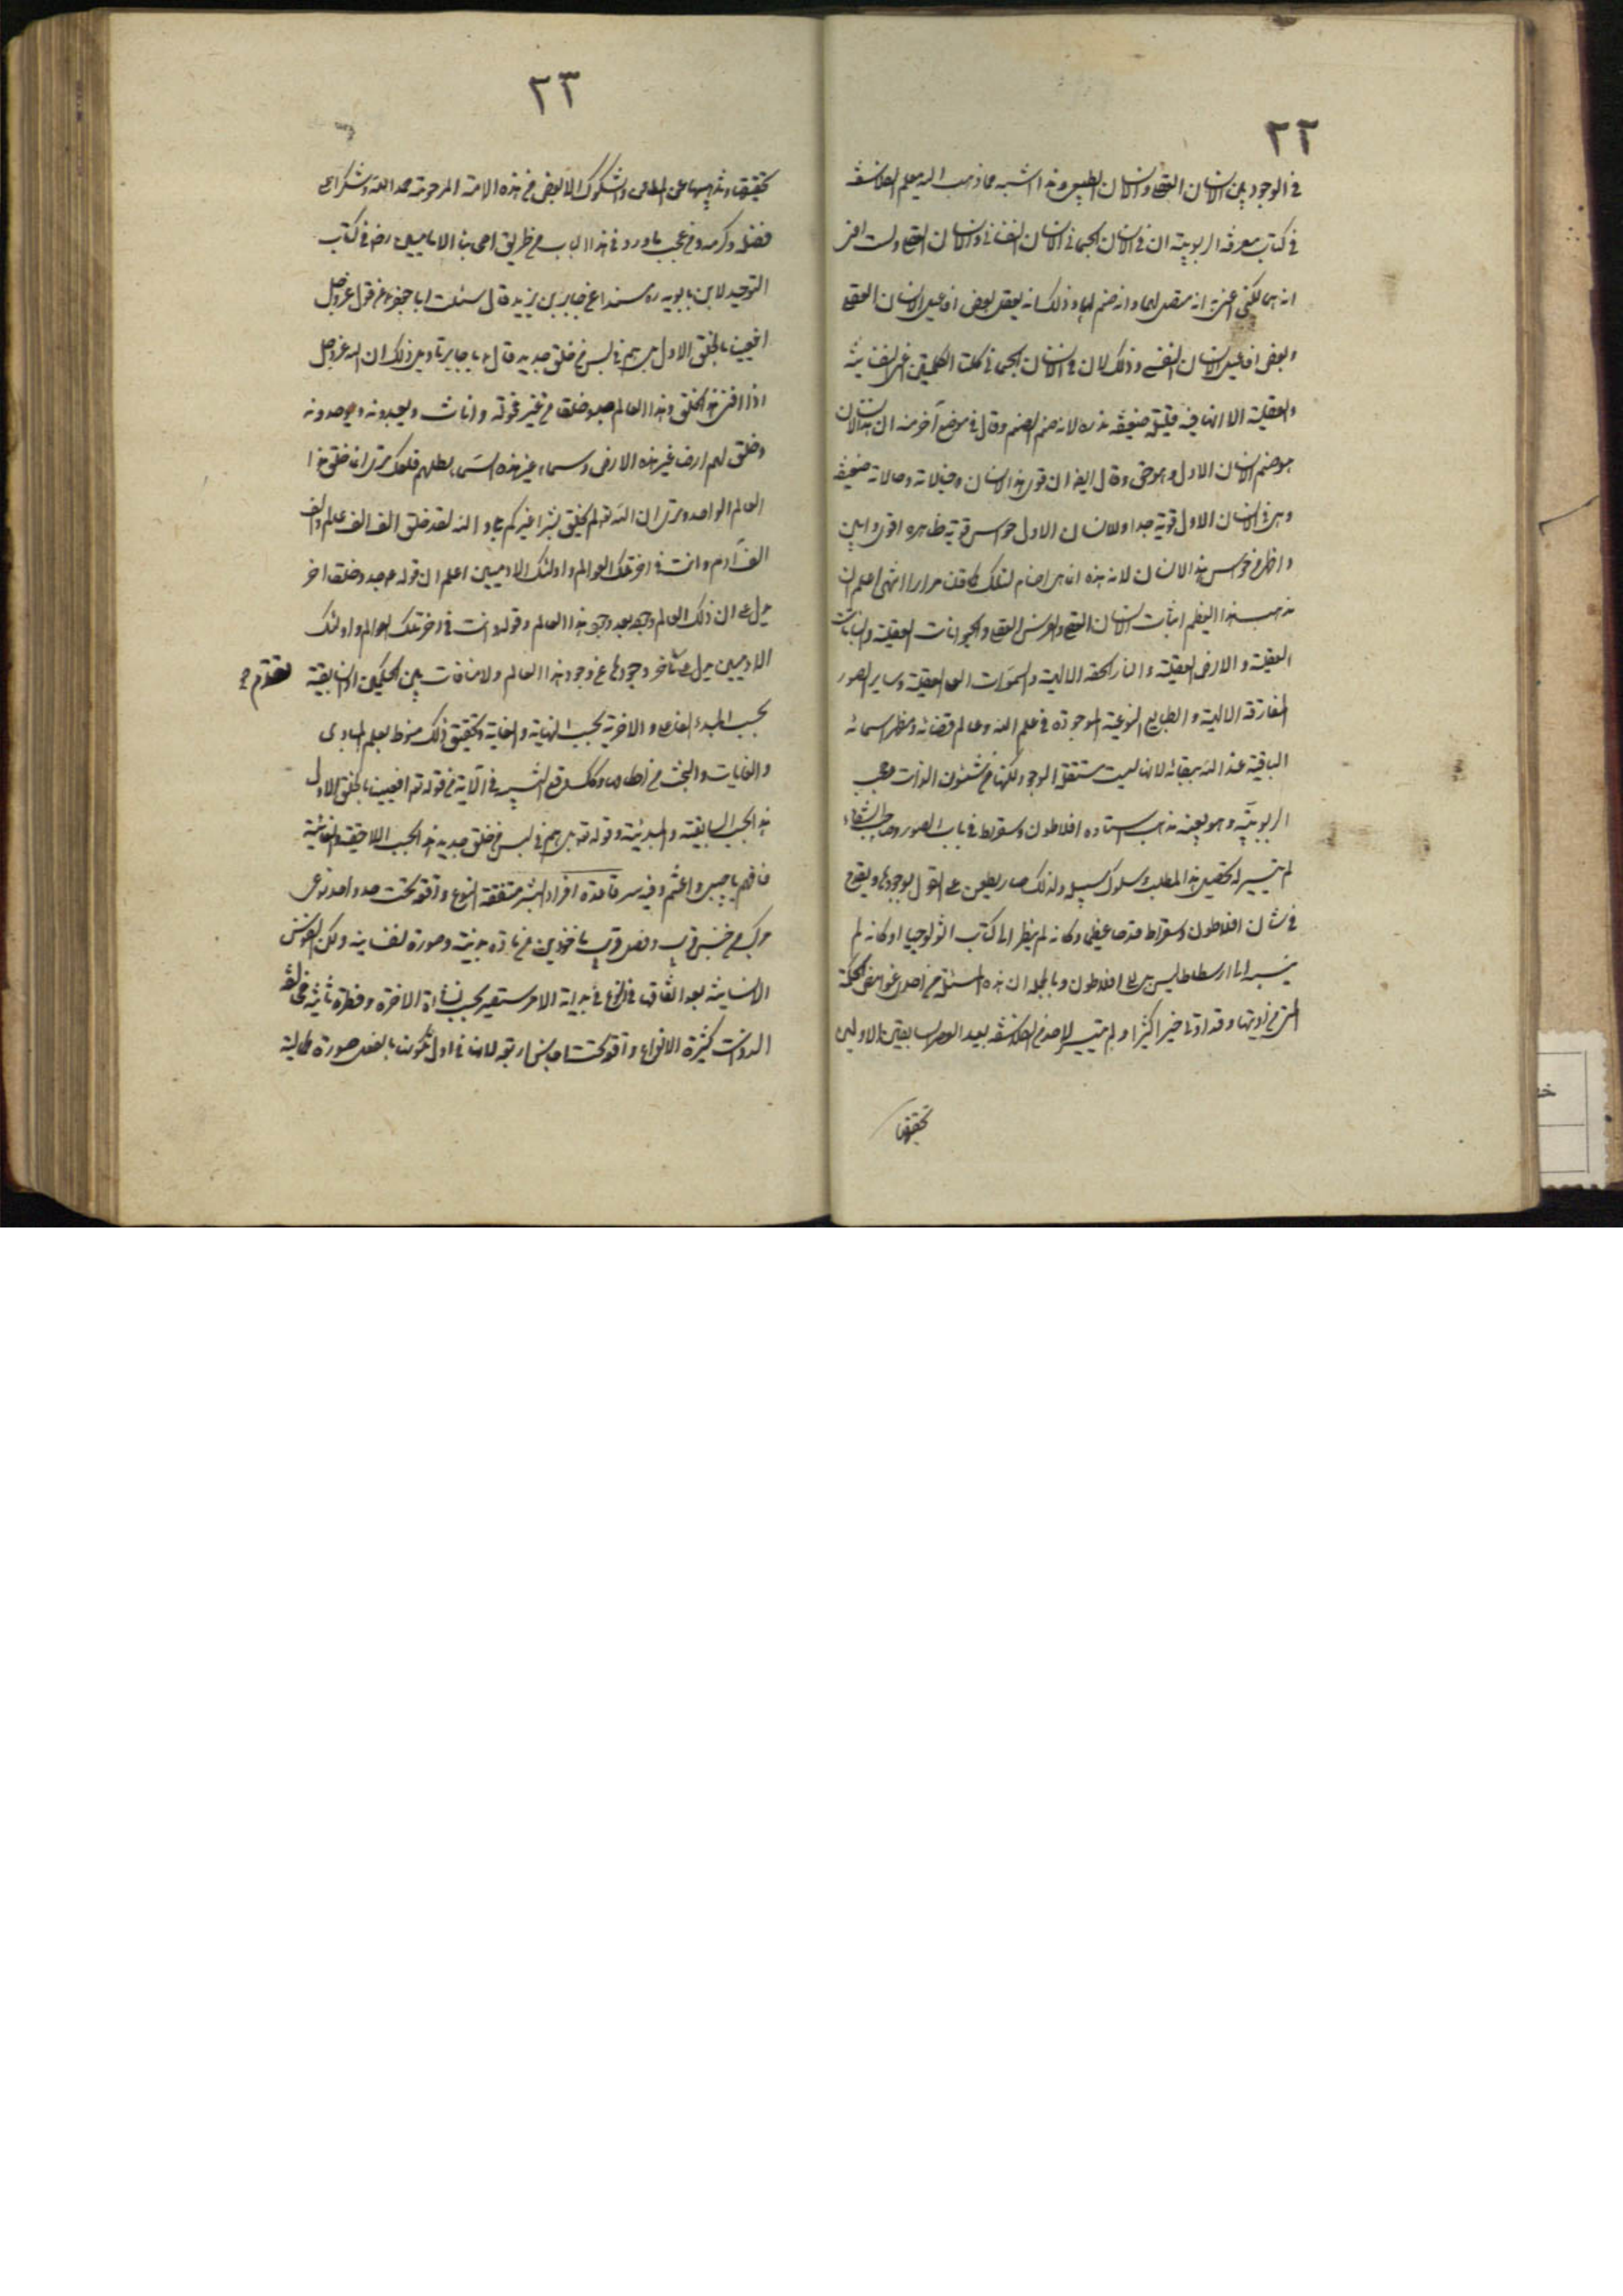 ٢٢
في الوجود بين الانسان العقلي والانسان الطبيعي وهذا اشبه مما ذهب اليه معلم الفلاسفة
في كتاب معرفة الربوبية ان في الانسان الجسماني الانسان النفساني والانسان العقلي ولست اعني
انه هما لكني اعني به انه متصل بهما وانه صنم لهما وذلك انه يفعل بعض افاعيل الانسان العقلي
وبعض افاعيل الانسان النفسي وذلك لان في الانسان الجسماني كلتا الكلمتين اعني النفسانية
والعقلية الا انها فيه قليلة ضعيفة نذره لانه صنم الصنم وقال في موضع آخر منه ان هذا الانسان
هو صنم الانسان الاول وهو حق وقال ايضا ان قوى هذا الانسان وحيلاته وحالاته ضعيفة
وهي في الانسان الاول قوية جدا وللانسان الاول حواس قوية ظاهره اقوى وابين
واظهر من حواس هذا الانسان لان هذه انما هي اصنام لتلك كما قلنا مرارا انتهى اعلم ان
مذهب هذا العظيم اثبات الانسان العقلي والفرس العقلي والحيوانات العقلية والنباتات
العقلية والارض العقلية والنار الحقة الالهية والسموات العلى العقلية وساير الصور
المفارقة الالهية والطبايع النوعية الموجودة في علم الله وعالم قضائه ومظهر اسمائه
الباقية عند الله ببقائه لانها ليست مستقلة الوجود لكنها من شئون الذات وحجب
الربوبية وهو بعينه مذهب استاده افلاطون وسقراط في باب الصور وصاحب الشفاء
لم يتيسر له تحصيل هذا المطلب وسلوك سبيله ولذلك صار يطعن على القول بوجودها ويقدح
في شان افلاطون وسقراط قدحا عظيما وكانه لم ينظر الى كتاب اثولوجيا او كانه لم
ينسبه الى ارسطاطاليس بل الى افلاطون وبالجملة ان هذه المسئلة من احد غوامض الحكمة
التي من اوتيها وقد اوتي خيرا كثيرا ولم يتيسر لاحد من الفلاسفة بعد العصر السابقين الاولين
تحقيقها
٢٣
تحقيقها وتهذيبها عن المطاعن والشكوك الا لبعض من هذه الامة المرحومة حمدا لله وشكرا على
فضله وكرمه ومن عجب ما ورد في هذا الباب من طريق اصحابنا الاماميين رض في كتاب
التوحيد لابن بابويه ره مسندا عن جابر بن يزيد قال سئلت ابا جعفر ع عن قول عز وجل
افعيينا بالخلق الاول بل هم في لبس من خلق جديد قال يا جابر تاويل ذلك ان الله عز وجل
اذا افنى هذا الخلق وهذا العالم جدد خلقا من غير فحولة واناث ويعبدونه ويوحدونه
وخلق لهم ارضا غير هذه الارض وسماء غير هذه السماء يظلهم فلعلك ترى انه خلق هذا
العالم الواحد وترى ان الله تع لم يخلق بشرا غيركم بلى والله لقد خلق الف الف عالم والف
الف آدم وانت في اخر تلك العوالم واولئك الادميين اعلم ان قوله ع جدد خلقا اخر
يدل على ان ذلك العالم وجوده بعد وجود هذا العالم وقوله وانت في اخر تلك العوالم واولئك
الادميين يدل على تأخر وجودها عن وجود هذا العالم ولا منافات بين الحكمين اذ السابقية
تقدم
بحسب المبدء الفاعلي والاخرية بحسب النهاية والغاية وتحقيق ذلك منوط بعلم المبادى
والغايات والبحث من احوالها وكذلك وقع التشبيه في الآية من قوله تع افعيينا بالخلق الاول
هذا بحسب السابقية والمبدئية وقوله تع بل هم في لبس من خلق جديد هذا بحسب اللاحقية والغائية
فافهم يا حبيبي واغتنم وفيه سر قاعدة افراد البشر متفقة النوع واقعة تحت حد واحد نوعي
مركب من جنس قريب وفصل قريب ماخوذين من مادة بدنية وصورة نفسانية ولكن النفوس
الانسانية بعد اتفاقها في النوع في بداية الامر ستصير بحسب نشأة الاخرة وفطرة ثانية مختلفة
الذوات كثيرة الانواع واقعة تحت اجناس اربعة لانها في اول تكونها بالفعل صورة كمالية